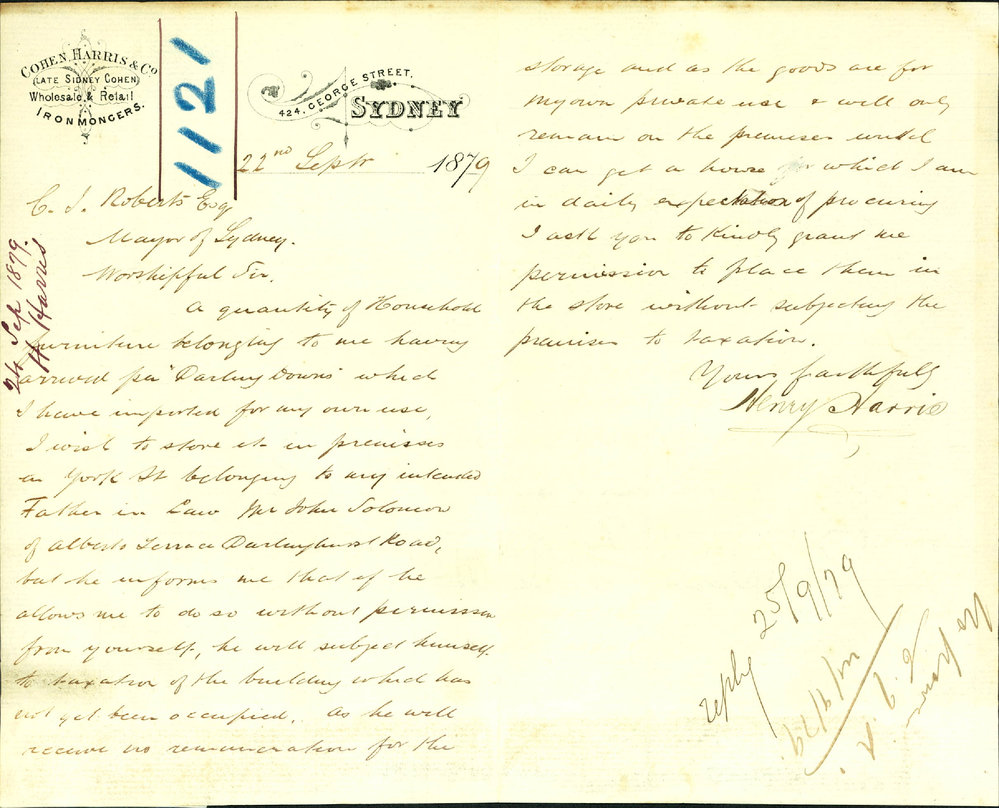 COHEN, HARRIS & Co
(LATE SIDNEY COHEN)
Wholesale & Retail
IRONMONGERS.
1121
424, GEORGE STREET,
SYDNEY
22nd Sept 1879
24 Sep 1879.
H. Harris
C. J. Roberts Esq
Mayor of Sydney.
Worshipful Sir.
A quantity of Household
furniture belonging to me having
arrived per "Darling Downs" which
I have imported for my own use,
I wish to store it in premises
in York St belonging to my intended
Father in Law Mr John Solomon
of Alberto Terrace Darlinghurst Road,
but he informs me that if he
allows me to do so without permission
from yourself, he will subject himself
to taxation of the building which has
not yet been occupied. As he will
receive no remuneration for the
storage and as the goods are for
my own private use & will only
remain on the premises until
I can get a house for which I am
in daily expectation of procuring
I ask you to kindly grant me
permission to place them in
the store without subjecting the
premises to taxation.
Yours faithfully
Henry Harris
reply 25/9/79